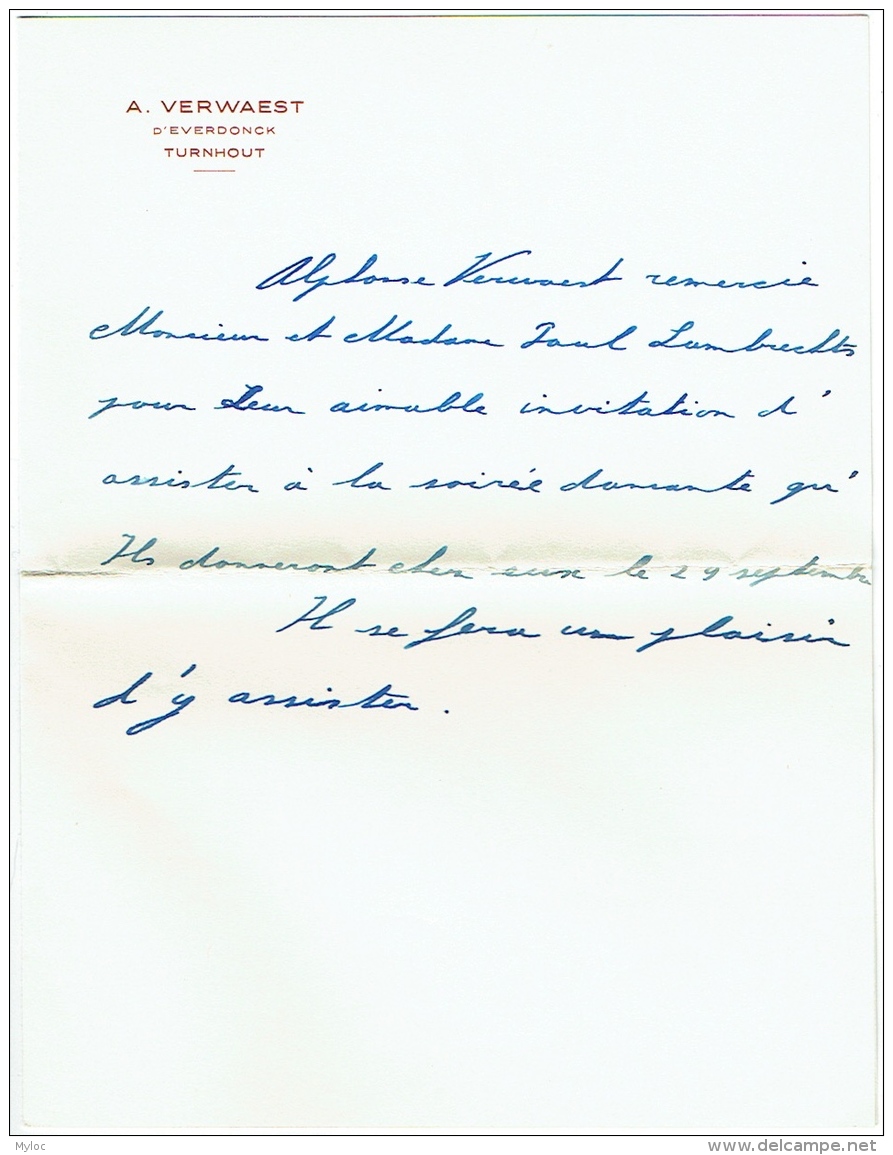 A. VERWAEST
D'EVERDONCK
TURNHOUT
Alphonse Verwaest remercie
Monsieur et Madame Paul Lambrechts
pour Leur aimable invitation d'
assister à la soirée dansante qu'
Ils donneront chez eux le 29 septembre
Il se fera un plaisir
d'y assister.
Myloc
www.delcampe.net